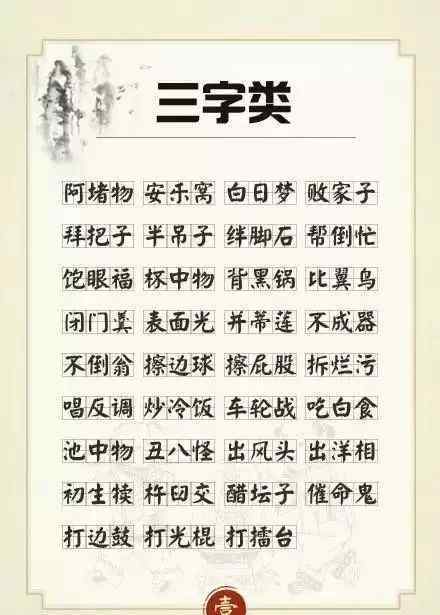 三字类
阿堵物 安乐窝 白日梦 败家子
拜把子 半吊子 绊脚石 帮倒忙
饱眼福 杯中物 背黑锅 比翼鸟
闭门羹 表面光 并蒂莲 不成器
不倒翁 擦边球 擦屁股 拆烂污
唱反调 炒冷饭 车轮战 吃白食
池中物 丑八怪 出风头 出洋相
初生犊 杵臼交 醋坛子 催命鬼
打边鼓 打光棍 打擂台
壹